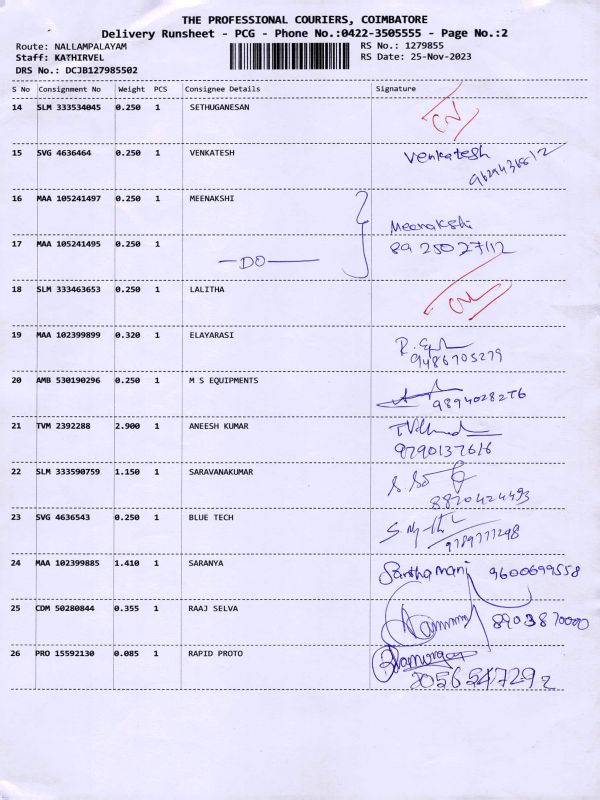 THE PROFESSIONAL COURIERS, COIMBATORE
Delivery Runsheet - PCG - Phone No.:0422-3505555 - Page No.:2
Route: NALLAMPALAYAM RS No.: 1279855
Staff: KATHIRVEL RS Date: 25-Nov-2023
DRS No.: DCJB127985502
S No Consignment No Weight PCS Consignee Details Signature
14 SLM 333534045 0.250 1 SETHUGANESAN
15 SVG 4636464 0.250 1 VENKATESH Venkatesh
16 MAA 105241497 0.250 1 MEENAKSHI Meenakshi
17 MAA 105241495 0.250 1 8925027112
—DO—
18 SLM 333463653 0.250 1 LALITHA
19 MAA 102399899 0.320 1 ELAYARASI
9486705279
20 AMB 530190296 0.250 1 M S EQUIPMENTS
9894028276
21 TVM 2392288 2.900 1 ANEESH KUMAR
9790137616
22 SLM 333590759 1.150 1 SARAVANAKUMAR
8870424493
23 SVG 4636543 0.250 1 BLUE TECH
9789777298
24 MAA 102399885 1.410 1 SARANYA Santhamani 9600699558
25 CDM 50280844 0.355 1 RAAJ SELVA 8903870000
26 PRO 15592130 0.085 1 RAPID PROTO